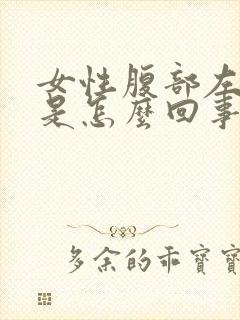 女性腹部左
是怎麼回事
多余的乖寶寶